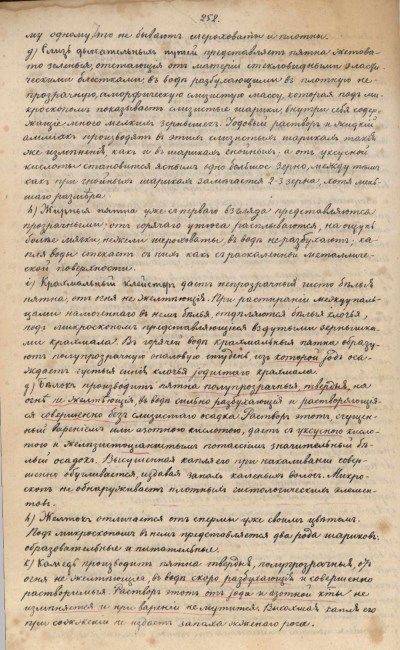 252.
му одному, то не бываютъ шероховаты и плотны.
g) Слизь дыхательныхъ путей представляетъ пятна желтова-
то зеленыя, отстающія отъ матеріи стекловидными эласти-
ческими блестками, въ водѣ разбухающими въ плотную не-
прозрачную, аморфическую слизистую массу, которая подъ ми-
кроскопомъ показываетъ слизистые шарики, внутри себя содер-
жащіе много мелкихъ зернышекъ. Іодовый растворъ и жидкій
амміакъ производятъ въ этихъ слизистыхъ шарикахъ такія
же измѣненія, какъ и въ шарикахъ гнойныхъ, а отъ уксусной
кислоты становится яснымъ одно большое зерно, между тѣмъ
какъ при гнойныхъ шарикахъ замѣчается 2-3 зерна, хотя мень-
шаго размѣра.
h) Жирныя пятна уже съ перваго взгляда представляются
прозрачными; отъ горячаго утюга расплываются, на ощупь
болѣе мягки, нежели шероховаты, въ водѣ не разбухаютъ; ка-
пля воды стекаетъ съ нихъ какъ съ раскаленной металличе-
ской поверхности.
i) Крахмальный клейстеръ даетъ непрозрачныя чисто бѣлыя
пятна, отъ огня не желтѣющія. При растираніи между паль-
цами налощеннаго въ немъ бѣлья, отдѣляются бѣлыя клочья,
подъ микроскопомъ представляющіеся вздутыми зернышка-
ми крахмала. Въ горячей водѣ крахмальныя пятна образу-
ютъ полупрозрачную опаловую студень, изъ которой іодъ оса-
ждаетъ густыя синія клочья іодистаго крахмала.
g) Бѣлокъ производитъ пятна полупрозрачныя, твердыя, на
огнѣ не желтѣющія, въ водѣ сильно разбухающія и растворяющія-
ся совершенно безъ слизистаго осадка. Растворъ этотъ, сгущен-
ный вареніемъ или азотною кислотою, даетъ съ уксусною кисло-
тою и желѣзистоціанистымъ потассіемъ значительный бѣ-
лый осадокъ. Высушенная капля его при накаливаніи совер-
шенно обугливается, издавая запахъ каленыхъ волосъ. Микро-
скопъ не обнаруживаетъ плотныхъ гистологическихъ элемен-
товъ.
h) Желтокъ отличается отъ спермы уже своимъ цвѣтомъ.
Подъ микроскопомъ въ немъ представляется два рода шариковъ:
образовательные и питательные.
k) Камедь производитъ пятна твердыя, полупрозрачныя, отъ
огня не желтѣющія, въ водѣ скоро разбухающія и совершенно
растворимыя. Растворъ этотъ отъ іода и азотной кты не
измѣняется и при вареніи не мутится. Высохшая капля его
при сожженіи не издаетъ запаха жженаго рога.